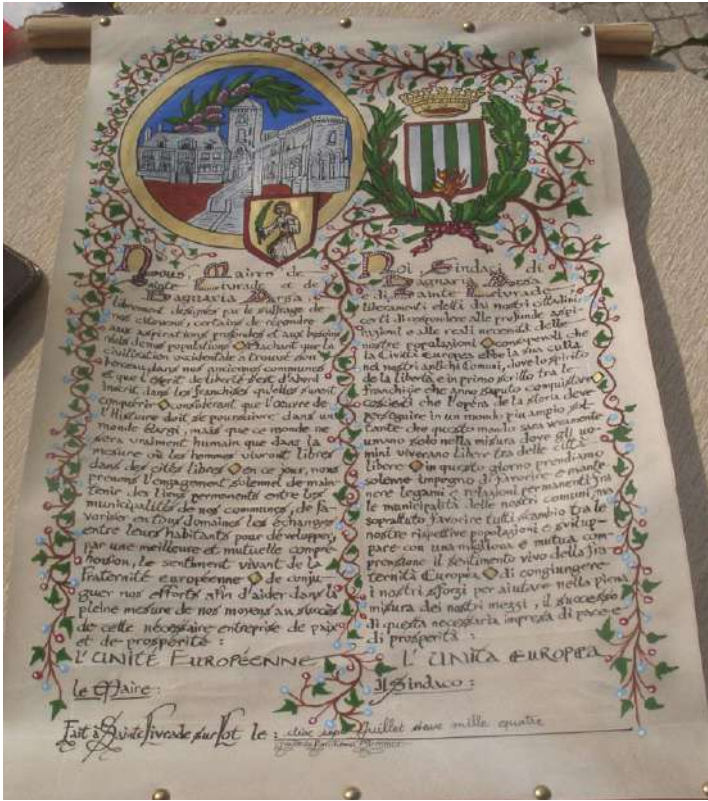 Nous, Maires de
Sainte Livrade et de
Bagnaria Arsa,
librement désignés par le suffrage de
nos citoyens, certains de répondre
aux aspirations profondes et aux besoins
réels de nos populations Sachant que la
civilisation occidentale a trouvé son
berceau dans nos anciennes communes
et que l'esprit de liberté s'est d'abord
inscrit dans les franchises qu'elles surent
conquérir considérant que l'œuvre de
l'Histoire doit se poursuivre dans un
monde élargi, mais que ce monde ne
sera vraiment humain que dans la
mesure où les hommes vivront libres
dans des cités libres en ce jour, nous
prenons l'engagement solennel de main-
tenir des liens permanents entre les
municipalités de nos communes, de fa-
voriser en tous domaines les échanges
entre leurs habitants pour développer,
par une meilleure et mutuelle compré-
hension, le sentiment vivant de la
Fraternité européenne de conju-
guer nos efforts afin d'aider dans la
pleine mesure de nos moyens au succès
de cette nécessaire entreprise de paix
et de prospérité :
L'UNITÉ EUROPÉENNE
Le Maire :
Noi, Sindaci di
Bagnaria Arsa
e di Sainte Livrade
liberamenti eletti dai nostri cittadini
certi di rispondere alle profunde aspi-
razioni e alle reali necessità delle
nostre popolazioni consapevoli che
la Civiltà Europea ebbe la sua culla
nei nostri antichi Comuni, dove lo spirito
de la libertà e in primo scritto tra le
franchigie che anno saputo conquistare
coscienti che l'opéra de la storia deve
perseguire in un mondo piu ampio, sol-
tante che questo mondo sara veramente
umano solo nella misura dove gli uo-
mini viverano libere tra delle città
libere in questo giorno prendiamo
solenne impegno di favorire e mante
nere legami e relazioni permanenti fra
le municipalità delle nostri comuni, ma
soprattuto favorire tutti scambio tra le
nostre rispettive popolazioni e svilup-
pare con una migliora e mutua com-
prensione il sentimento vivo della fra
ternità Europea di congiungere
i nostri sforzi per aiutare nella piena
misura dei nostri mezzi, il successo
di questa necessaria impresa di pace e
di prosperità :
L'UNITA EUROPEA
Il Sindaco :
Fait à Sainte Livrade sur Lot le : Juillet deux mille quatre